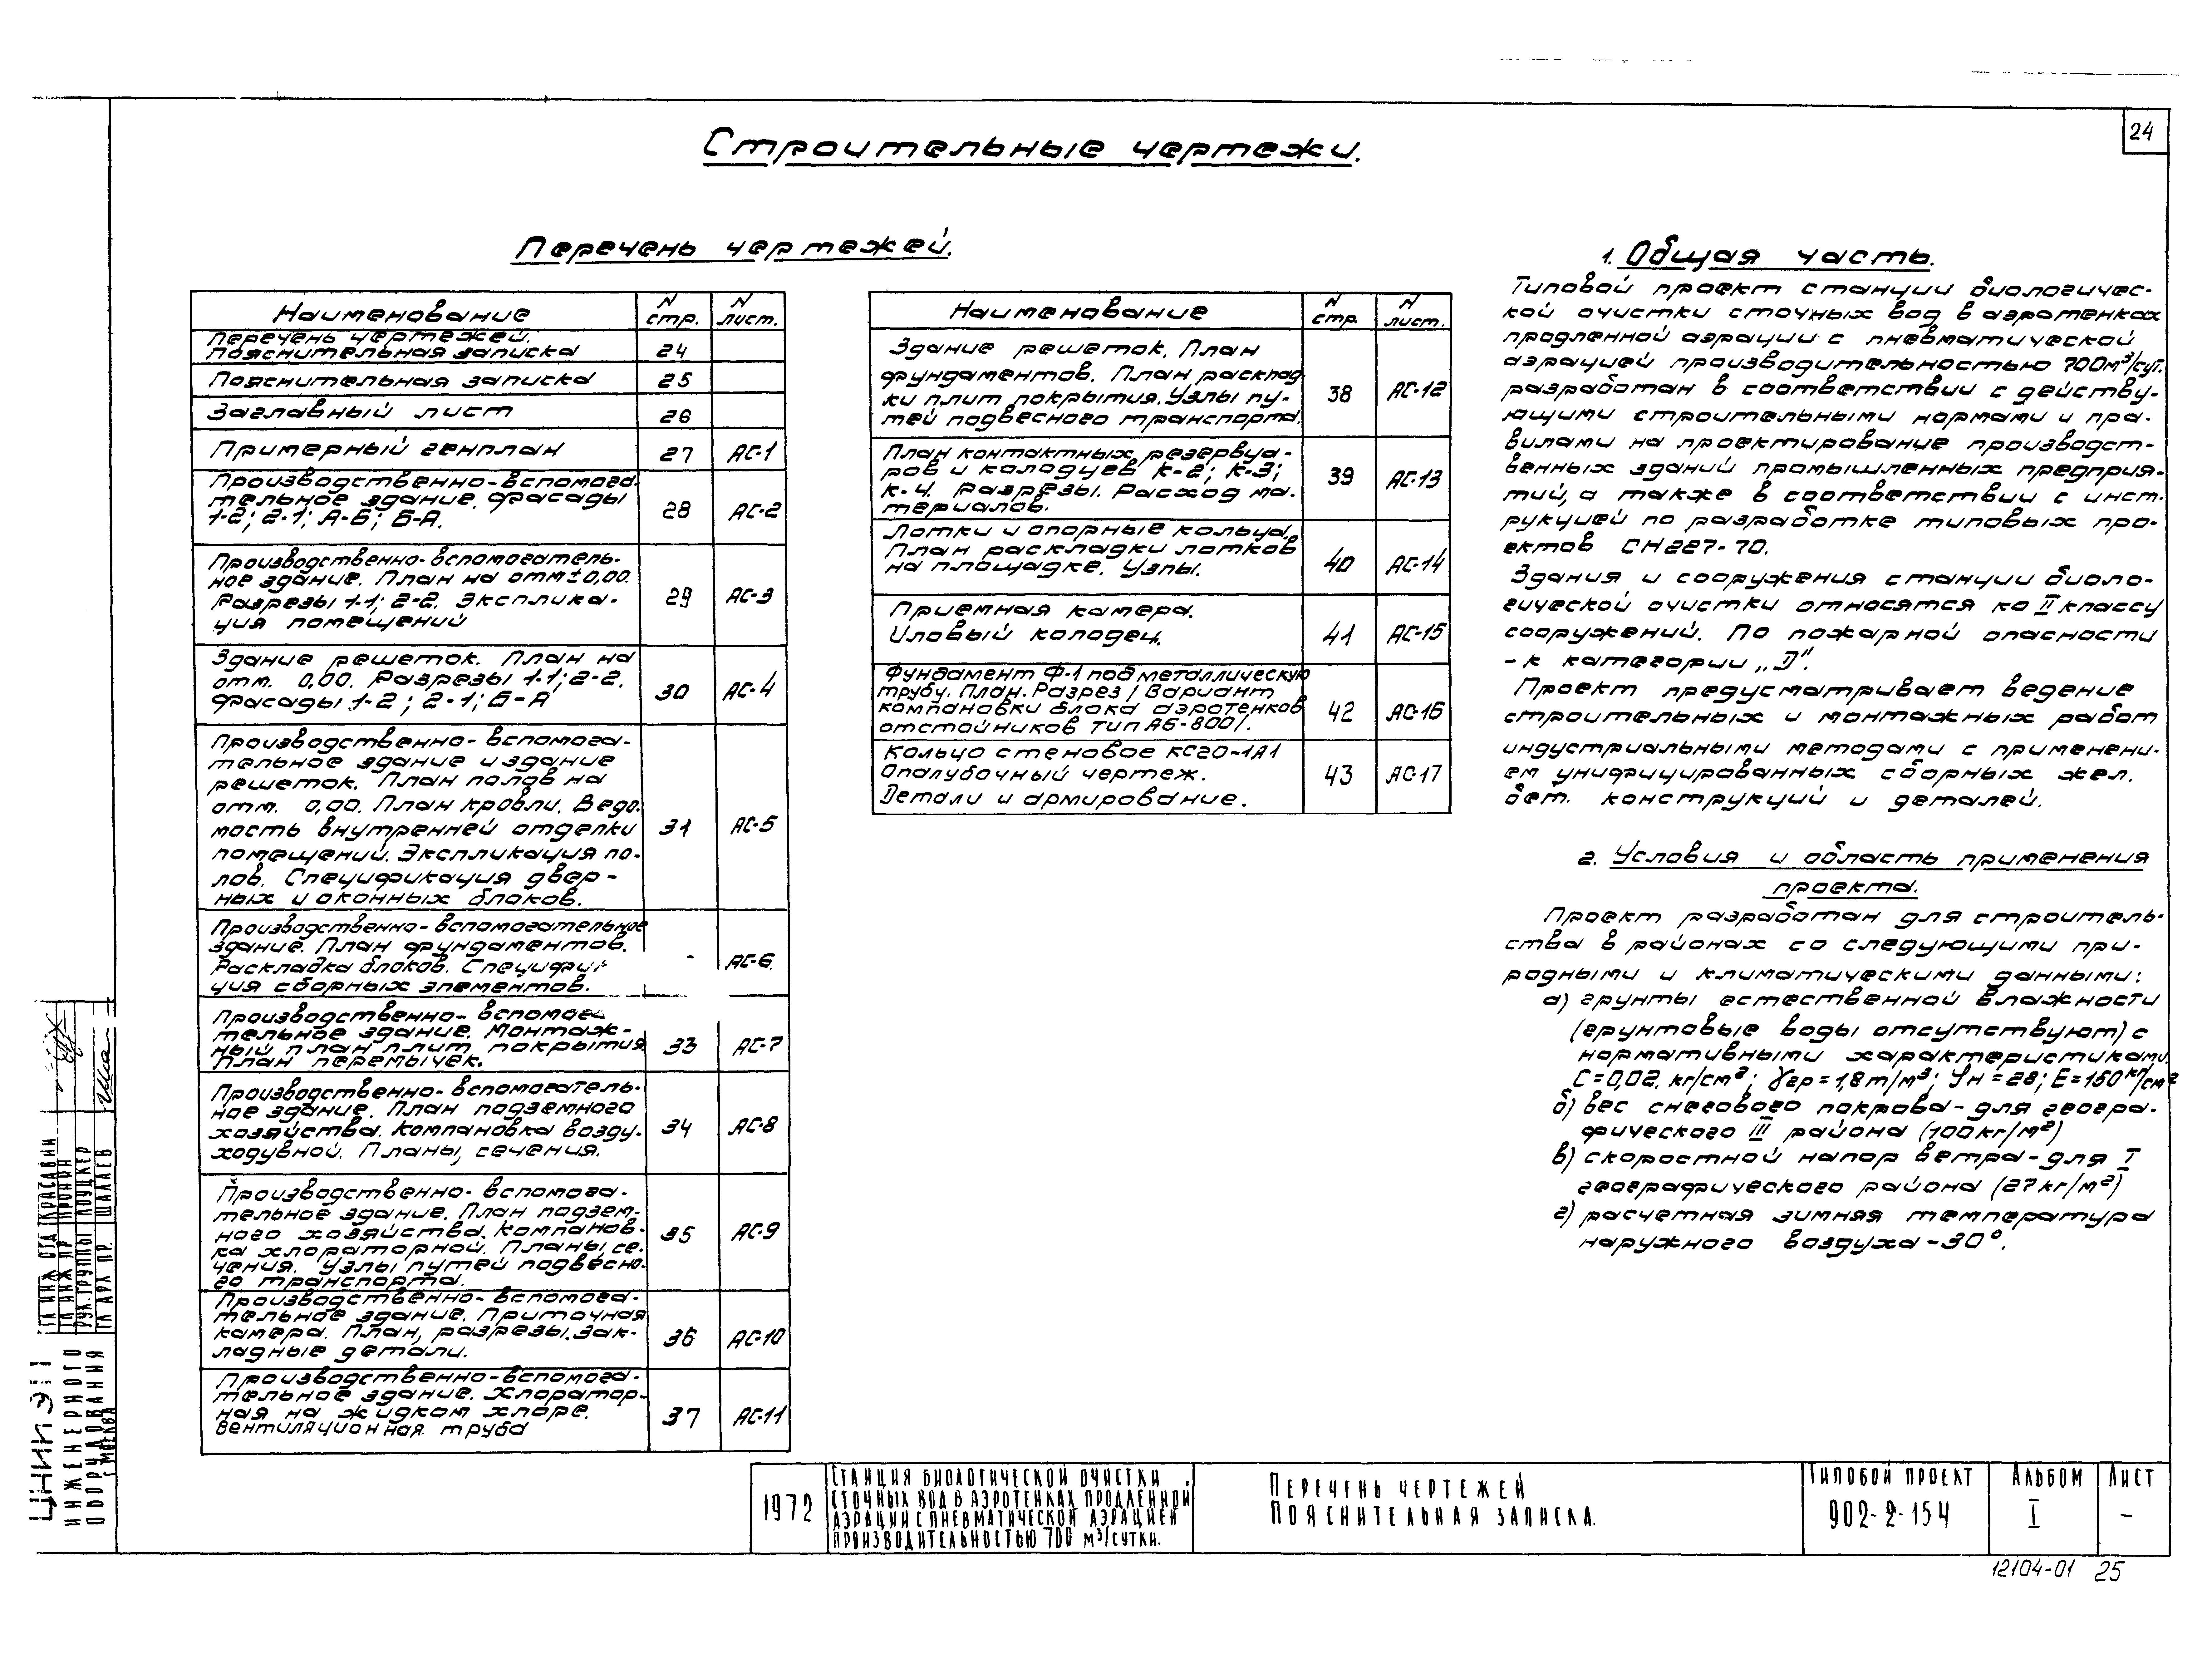 24
Строительные чертежи.
Перечень чертежей.
Наименование
N стр.
N лист.
Перечень чертежей.
Пояснительная записка
24
Пояснительная записка
25
Заглавный лист
26
Примерный генплан
27
АС-1
Производственно-вспомога-
тельное здание. Фасады
1-2; 2-1; А-Б; Б-А.
28
АС-2
Производственно-вспомогатель-
ное здание. План на отм ± 0,00.
Разрезы 1-1; 2-2. Эксплика-
ция помещений
29
АС-3
Здание решеток. План на
отм. 0,00. Разрезы 1-1; 2-2.
Фасады 1-2; 2-1; Б-А
30
АС-4
Производственно-вспомога-
тельное здание и здание
решеток. План полов на
отм. 0,00. План кровли. Ведо-
мость внутренней отделки
помещений. Экспликация по-
лов. Спецификация двер-
ных и оконных блоков.
31
АС-5
Производственно-вспомогательное
здание. План фундаментов.
Раскладка блоков.
ция сборных элементов.
АС-6
Производственно-
тельное здание. Монтаж-
ный план плит покрытия
План перемычек.
33
АС-7
Производственно-вспомогатель-
ное здание. План подземного
хозяйства. Компановка возду-
ходувной. Планы, сечения.
34
АС-8
Производственно-вспомога-
тельное здание. План подзем-
ного хозяйства. Компанов-
ка хлораторной. Планы, се-
чения. Узлы путей подвесно-
го транспорта.
35
АС-9
Производственно-вспомога-
тельное здание. Приточная
камера. План, разрезы. Зак-
ладные детали.
36
АС-10
Производственно-вспомога-
тельное здание. Хлоратор-
ная на жидком хлоре.
Вентиляционная труба
37
АС-11
Наименование
N стр.
N лист.
Здание решеток. План
фундаментов. План расклад-
ки плит покрытия. Узлы пу-
тей подвесного транспорта.
38
АС-12
План контактных резервуа-
ров и колодцев К-2; К-3;
К-4. Разрезы. Расход ма-
териалов.
39
АС-13
Лотки и опорные кольца.
План раскладки лотков
на площадке. Узлы.
40
АС-14
Приемная камера.
Иловый колодец.
41
АС-15
Фундамент Ф-1 под металлическую
трубу. План. Разрез / Вариант
кампановки блока аэротенков
отстойников тип АБ-800/.
42
АС-16
Кольцо стеновое КС20-1А1
Опалубочный чертеж.
Детали и армирование.
43
АС-17
1. Общая часть.
Типовой проект станции биологичес-
кой очистки сточных вод в аэротенках
продленной аэрации с пневматической
аэрацией производительностью 700м³/сут.
разработан в соответствии с действу-
ющими строительными нормами и пра-
вилами на проектирование производст-
венных зданий промышленных предприя-
тий, а также в соответствии с инст-
рукцией по разработке типовых про-
ектов СН227-70.
Здания и сооружения станции биоло-
гической очистки относятся ко II классу
сооружений. По пожарной опасности
- к категории „Д".
Проект предусматривает ведение
строительных и монтажных работ
индустриальными методами с применени-
ем унифицированных сборных жел.
бет. конструкций и деталей.
2. Условия и область применения
проекта.
Проект разработан для строитель-
ства в районах со следующими при-
родными и климатическими данными:
а) грунты естественной влажности
(грунтовые воды отсутствуют) с
нормативными характеристиками
С=0,02. кг/см²; γгр=1,8т/м³; φн=28; Е=150кг/см²
б) вес снегового покрова - для геогра-
фического III района (100кг/м²)
в) скоростной напор ветра - для I
географического района (27кг/м²)
г) расчетная зимняя температура
наружного воздуха -30°.
ЦНИИЭП
ИНЖЕНЕРНОГО
ОБОРУДОВАНИЯ
г МОСКВА
ГЛ ИНЖ ОТД КРАСАВИН
ГЛ ИНЖ ПР ПРОНИН
РУК. ГРУППЫ ЛОУЦКЕР
ГЛ АРХ ПР. ШАЛАЕВ
1972
СТАНЦИЯ БИОЛОГИЧЕСКОЙ ОЧИСТКИ
СТОЧНЫХ ВОД В АЭРОТЕНКАХ ПРОДЛЕННОЙ
АЭРАЦИИ С ПНЕВМАТИЧЕСКОЙ АЭРАЦИЕЙ
ПРОИЗВОДИТЕЛЬНОСТЬЮ 700 м³/СУТКИ.
ПЕРЕЧЕНЬ ЧЕРТЕЖЕЙ
ПОЯСНИТЕЛЬНАЯ ЗАПИСКА.
ТИПОВОЙ ПРОЕКТ
902-2-154
АЛЬБОМ
I
ЛИСТ
-
12104-01 25